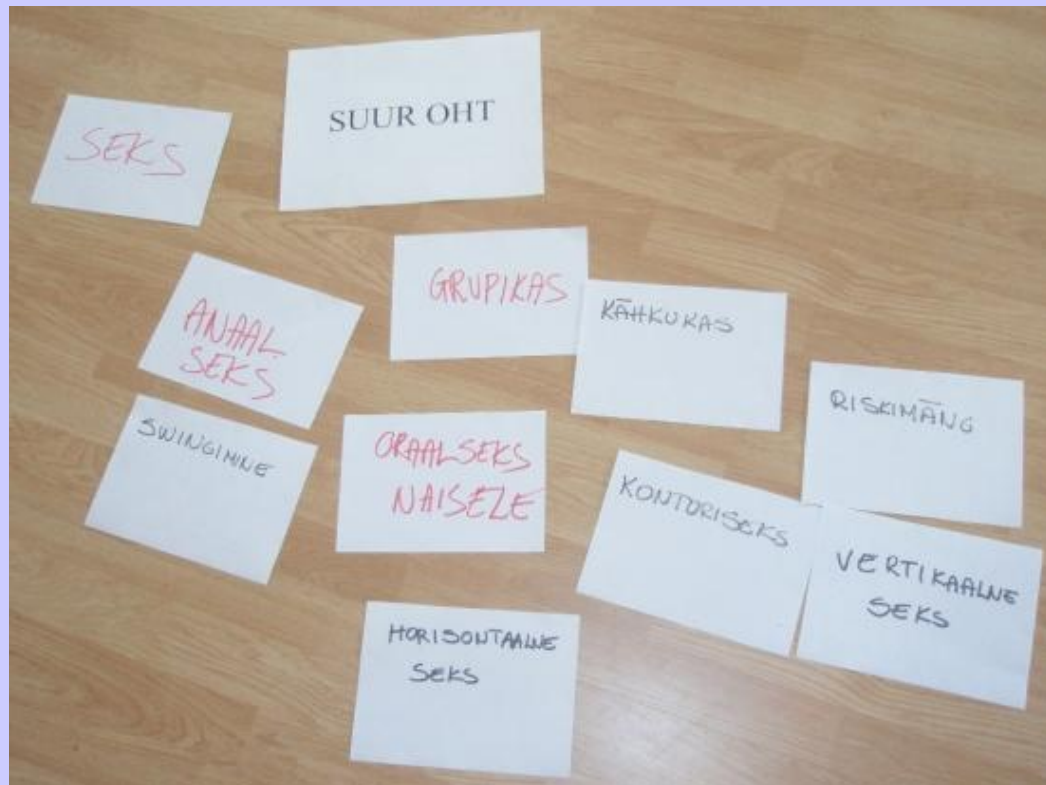 SEKS
SUUR OHT
ANAAL
SEKS
GRUPIKAS
KÄHKUKAS
RISKIMÄNG
SWINGIMINE
ORAALSEKS
NAISELE
KONTORISEKS
VERTIKAALNE
SEKS
HORISONTAALNE
SEKS